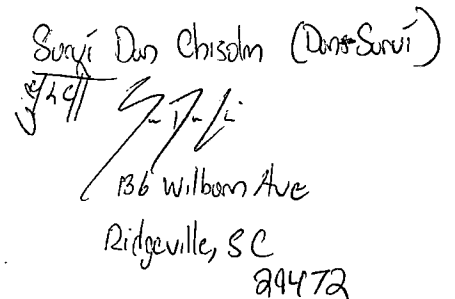 Survi Dan Chisolm (Dan Survi)
136 Wilborn Ave
Ridgeville, SC
29472